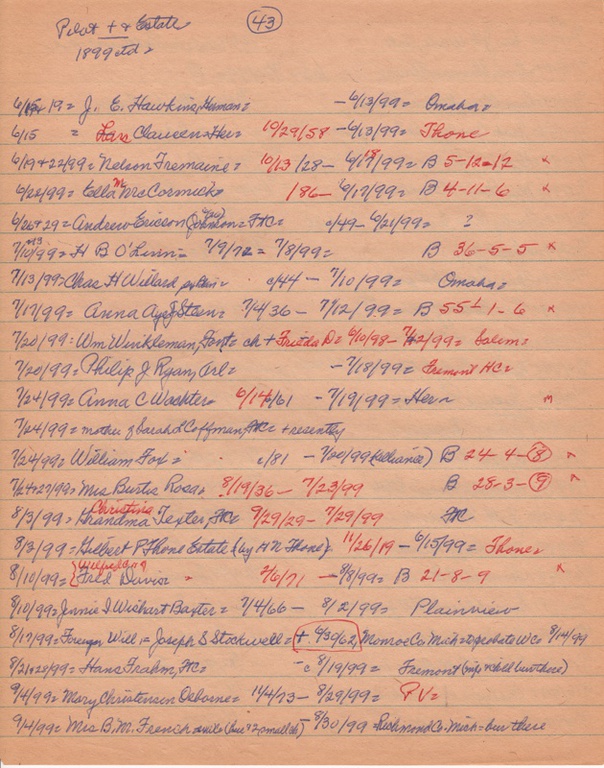 Pilot + & Estate (43)
1899 etd =
6/15 + 19 = J. E. Hawkins, Herman = - 6/13/99 = Omaha =
6/15 = Lars Clausen = Her = 10/29/58 - 6/13/99 = Thone
6/19 + 22/99 = Nelson Tremaine = 10/13/28 - 6/18/99 = B 5-12-12 x
6/22/99 = Ella M McCormick = 186- 6/17/99 = B 4-11-6 x
6/26 + 29 = Andrew Ericson (Johnson = FC = c/49 - 6/21/99 = ?
7/10 + 13/99 = H B O'Linn = 7/9/72 = 7/8/99 = B 36-5-5 x
7/13/99 = Chas H Willard, = c/44 - 7/10/99 = Omaha =
7/17/99 = Anna Steen = 7/4/36 - 7/12/99 = B 55 - 1 - 6 x
7/20/99 = Wm Winkleman, Font = ch + Frieda D = 6/10/98 - 7/12/99 = Salem =
7/20/99 = Philip J Ryan, Arl = - 7/18/99 = Fremont HC =
7/24/99 = Anna C Wachter = 6/14/61 - 7/19/99 = Her =
7/24/99 = mother of Sarah L Coffman, + recently
7/24/99 = William Fox = c/81 - 7/20/99 (Reliance) B 24-4-(8) x
7/24 + 27/99 = Mrs Burtis Rosa = 8/19/36 - 7/23/99 B 28-3-(9) x
8/3/99 = Christina Grandma Texter, FC = 9/29/29 - 7/29/99 FC
8/3/99 = Gilbert P Thone Estate (by H N Thone) . 11/26/19 - 6/15/99 = Thone =
8/10/99 = Wilfred Fred = 2/6/71 - 8/8/99 = B 21-8-9 x
8/10/99 = Jennie I Wishart Baxter = 7/4/66 - 8/2/99 = Plainview
8/17/99 = Foreign Will = Joseph S Stockwell = + 9/30/62, Monroe Co Mich = to probate W Co 8/14/99
8/21 + 28/99 = Hans Frahm, FC = - c 8/19/99 = Fremont
9/4/99 = Mary Christensen Osborne = 11/4/73 - 8/29/99 = PV =
9/4/99 = Mrs B. M. French - 8/30/99 = Richmond Co. Mich = bur there